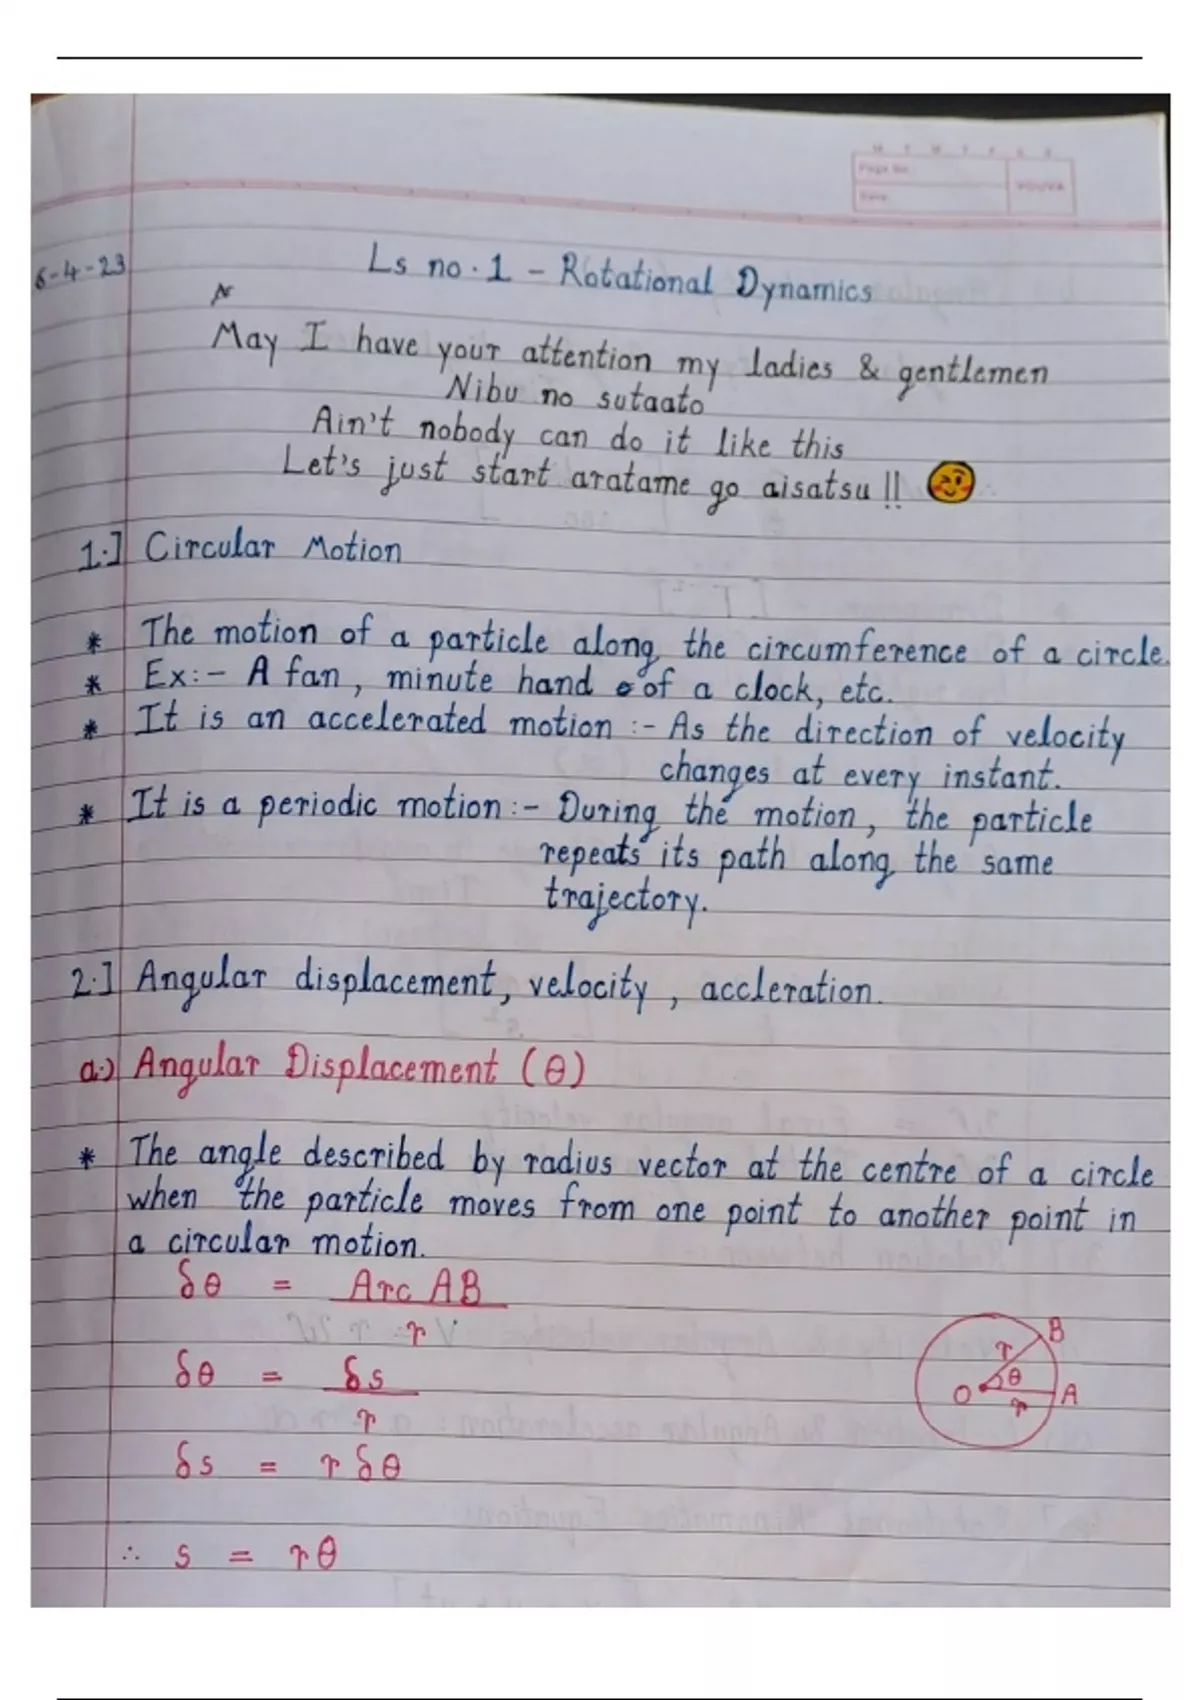 M T W T F S S
Page No.:
Date:
YOUVA
6-4-23
Ls no. 1 - Rotational Dynamics
May I have your attention my ladies & gentlemen
Nibu no sutaato
Ain't nobody can do it like this
Let's just start aratame go aisatsu !!
1.] Circular Motion
* The motion of a particle along the circumference of a circle.
* Ex:- A fan, minute hand of a clock, etc.
* It is an accelerated motion :- As the direction of velocity
changes at every instant.
* It is a periodic motion :- During the motion, the particle
repeats its path along the same
trajectory.
2.] Angular displacement, velocity, accleration.
a.) Angular Displacement (θ)
* The angle described by radius vector at the centre of a circle
when the particle moves from one point to another point in
a circular motion.
δθ = Arc AB / r
δθ = δs / r
δs = r δθ
∴ s = rθ
B
r
θ
O
r
A